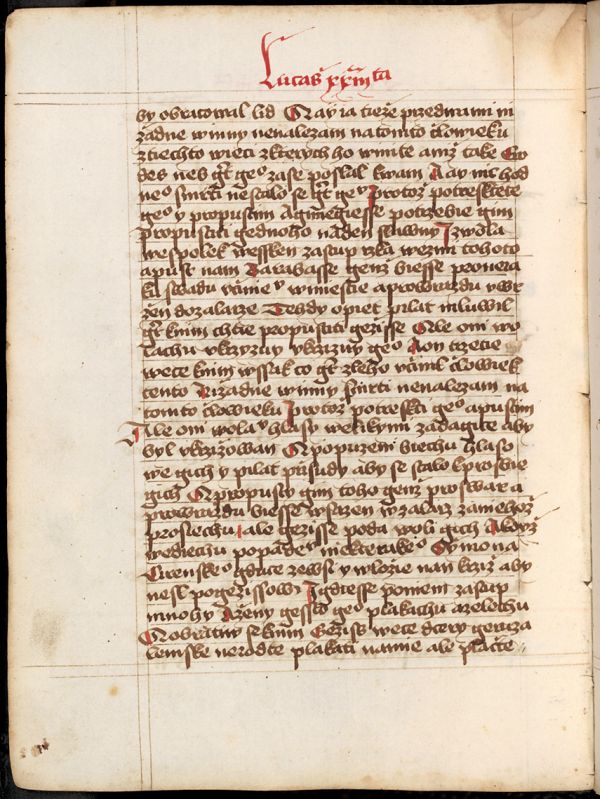 Lucas xxiii ta
by obraczowal lid A ay ia tieze przed wami ni
zadne winny nenalezam na tomto czlowieku
z tiechto wieci z kterych ho winite aniz take Ero
des neb gt geo zase poslal k wam A ay nic hod
neo smrti nestalo se gt geo protoz potresktete
geo y propustim A gmiegiesse potrzebie gim
propustiti gednoho na den slawny I zwola
wespolek wessken zastup rzka wezmi tohoto
a pust nam Barabasse genz biesse pro neta
ku swadu w miestie a pro wrazdu vwr
zen do zalarze Tehdy opiet pilat mluwil
gt k nim chtie propustiti gezisse Ale oni wo
lachu vkrzyzuy vkrzizuy geo A on trzecie
wece k nim wssak co gt zleho czlowiek
tento A zadne winny smrti nenalezam na
tomto czlowieku protoz potreskci geo a pustim
Ale oni wola hlasy welikymi zadagice aby
byl vkrzizowan A popuzeni biechu hlaso
we gich y pilat prisudy aby se stalo k prosbie
gich A propusty gim toho genz pro swar a
pro wrazdu biesse wsazen w zalarz za niehoz
prosiechu ale gezisse poda woli gich A kdyz
wediechu geo popade niekterakeo Symona
Cirenskeo gduce ze wsi y wlozie nan krziz aby
nesl po gezissowi I gdiesse po niem zastup
mnohy A zeny gesso geo plakachu a zelechu
A obratiw se k nim Geziss wece dcery geruza
lemske nerodte plakati na mie ale placzte